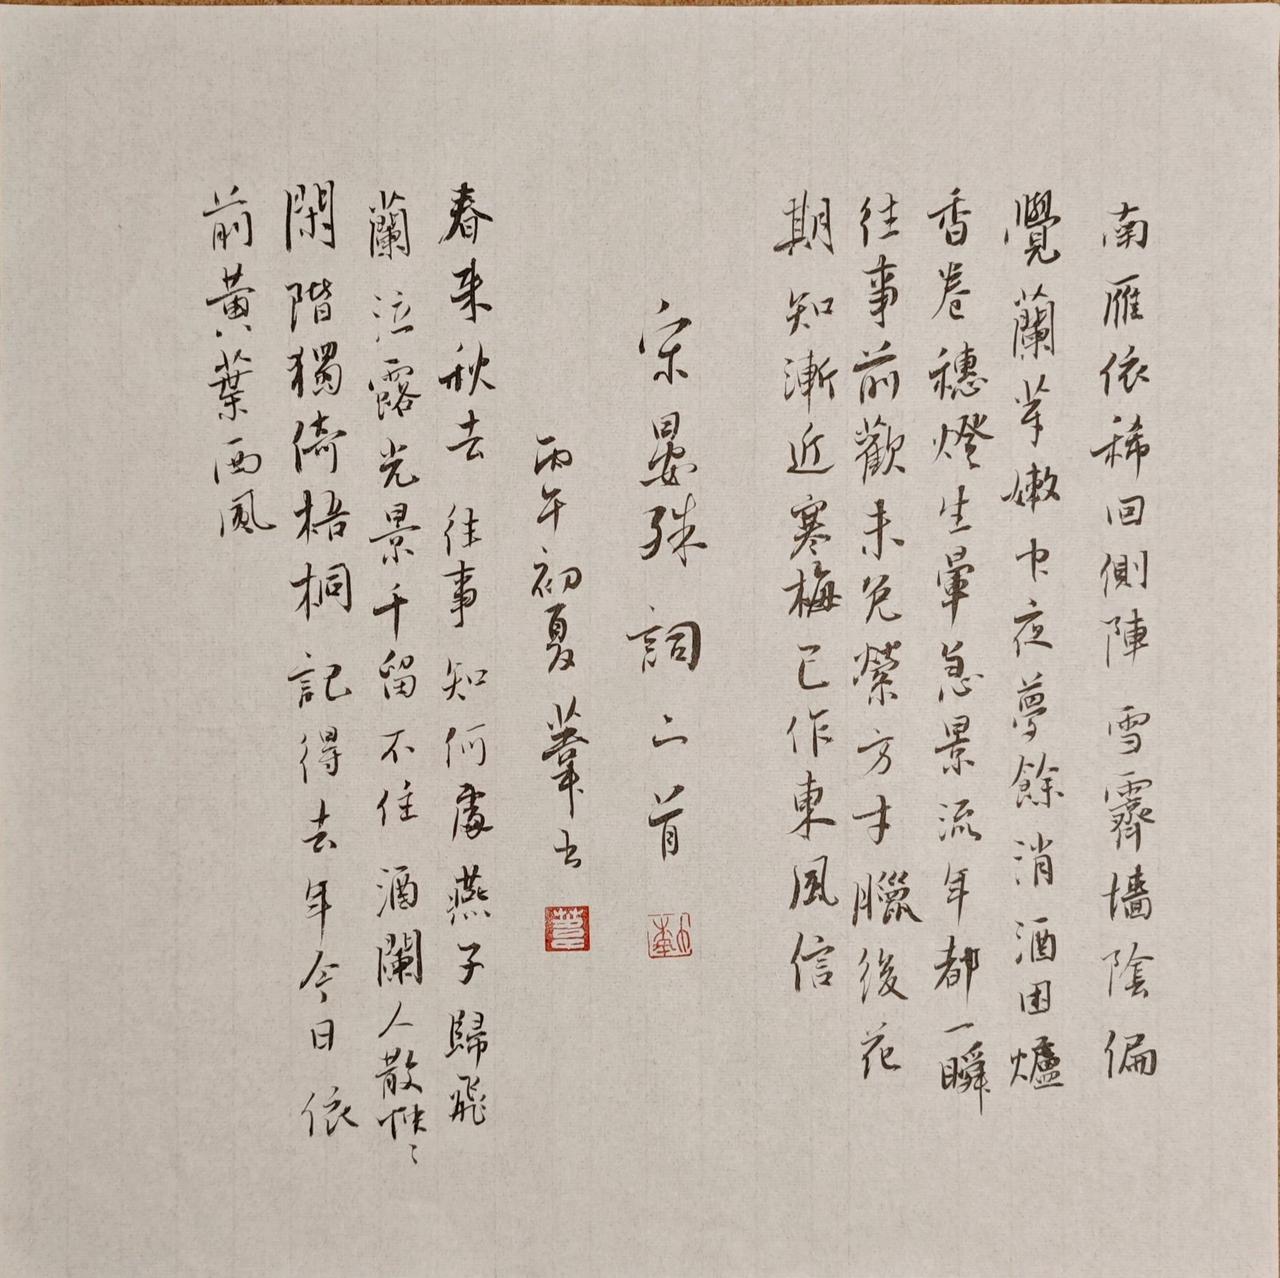 南雁依稀回側陣雪霽墻陰偏
覺蘭芽嫩中夜夢餘消酒困爐
香卷穗燈生暈急景流年都一瞬
往事前歡未免縈方寸臘後花
期知漸近寒梅已作東風信
宋晏殊詞二首
丙午初夏葦书
春来秋去往事知何處燕子歸飛
蘭泣露光景千留不住酒闌人散忡〻
閑階獨倚梧桐記得去年今日依
前黃葉西風